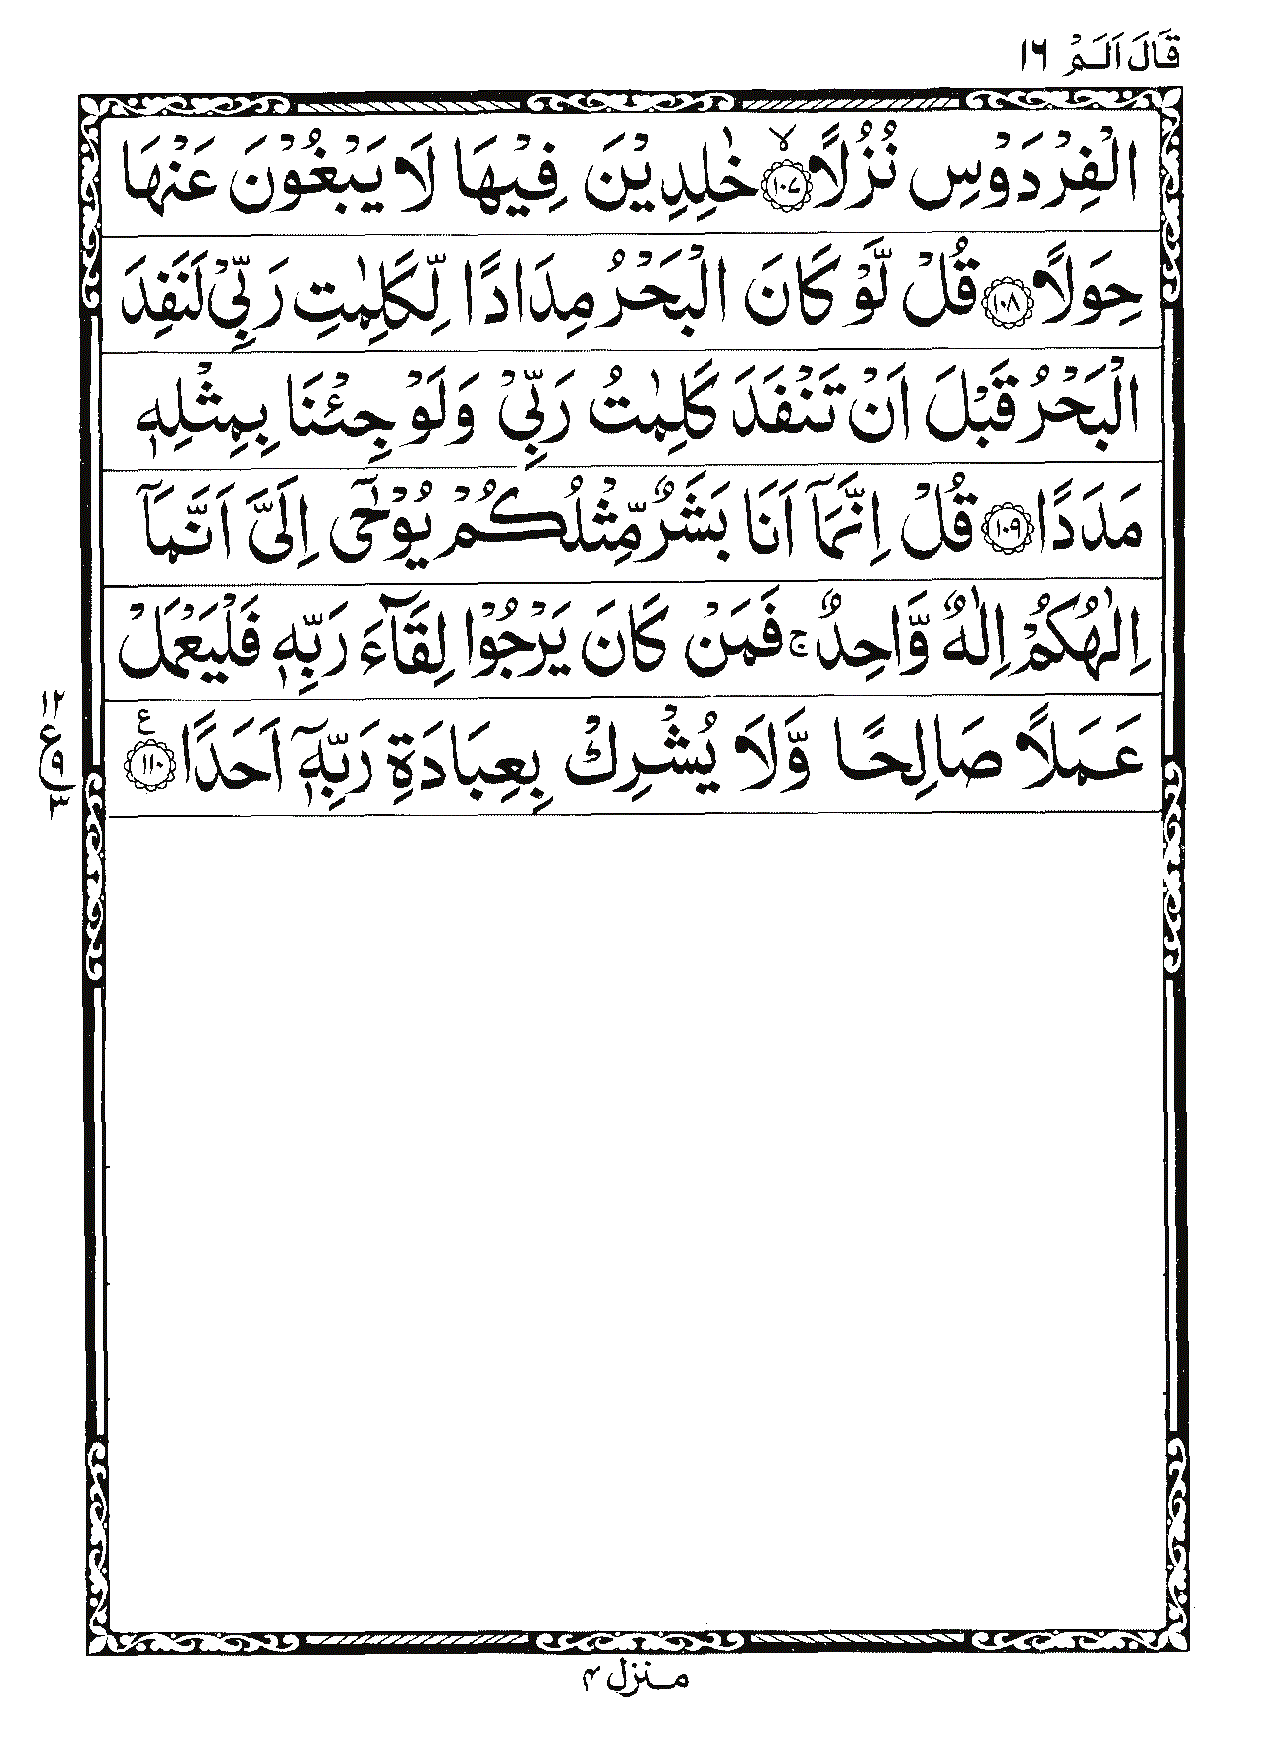 قَالَ اَلَمْ ١٦
الْفِرْدَوْسِ نُزُلًا ۙ‏﴿١٠٧﴾ خٰلِدِيْنَ فِيْهَا لَا يَبْغُوْنَ عَنْهَا
حِوَلًا ﴿١٠٨﴾ قُلْ لَّوْ كَانَ الْبَحْرُ مِدَادًا لِّكَلِمٰتِ رَبِّيْ لَنَفِدَ
الْبَحْرُ قَبْلَ اَنْ تَنْفَدَ كَلِمٰتُ رَبِّيْ وَلَوْ جِئْنَا بِمِثْلِهٖ
مَدَدًا ﴿١٠٩﴾ قُلْ اِنَّمَآ اَنَا بَشَرٌ مِّثْلُكُمْ يُوْحٰٓى اِلَيَّ اَنَّمَآ
اِلٰهُكُمْ اِلٰهٌ وَّاحِدٌ ۚ فَمَنْ كَانَ يَرْجُوْا لِقَآءَ رَبِّهٖ فَلْيَعْمَلْ
عَمَلًا صَالِحًا وَّلَا يُشْرِكْ بِعِبَادَةِ رَبِّهٖٓ اَحَدًا ﴿١١٠﴾ ع
١٢
ع
٩
٣
منزل ۴